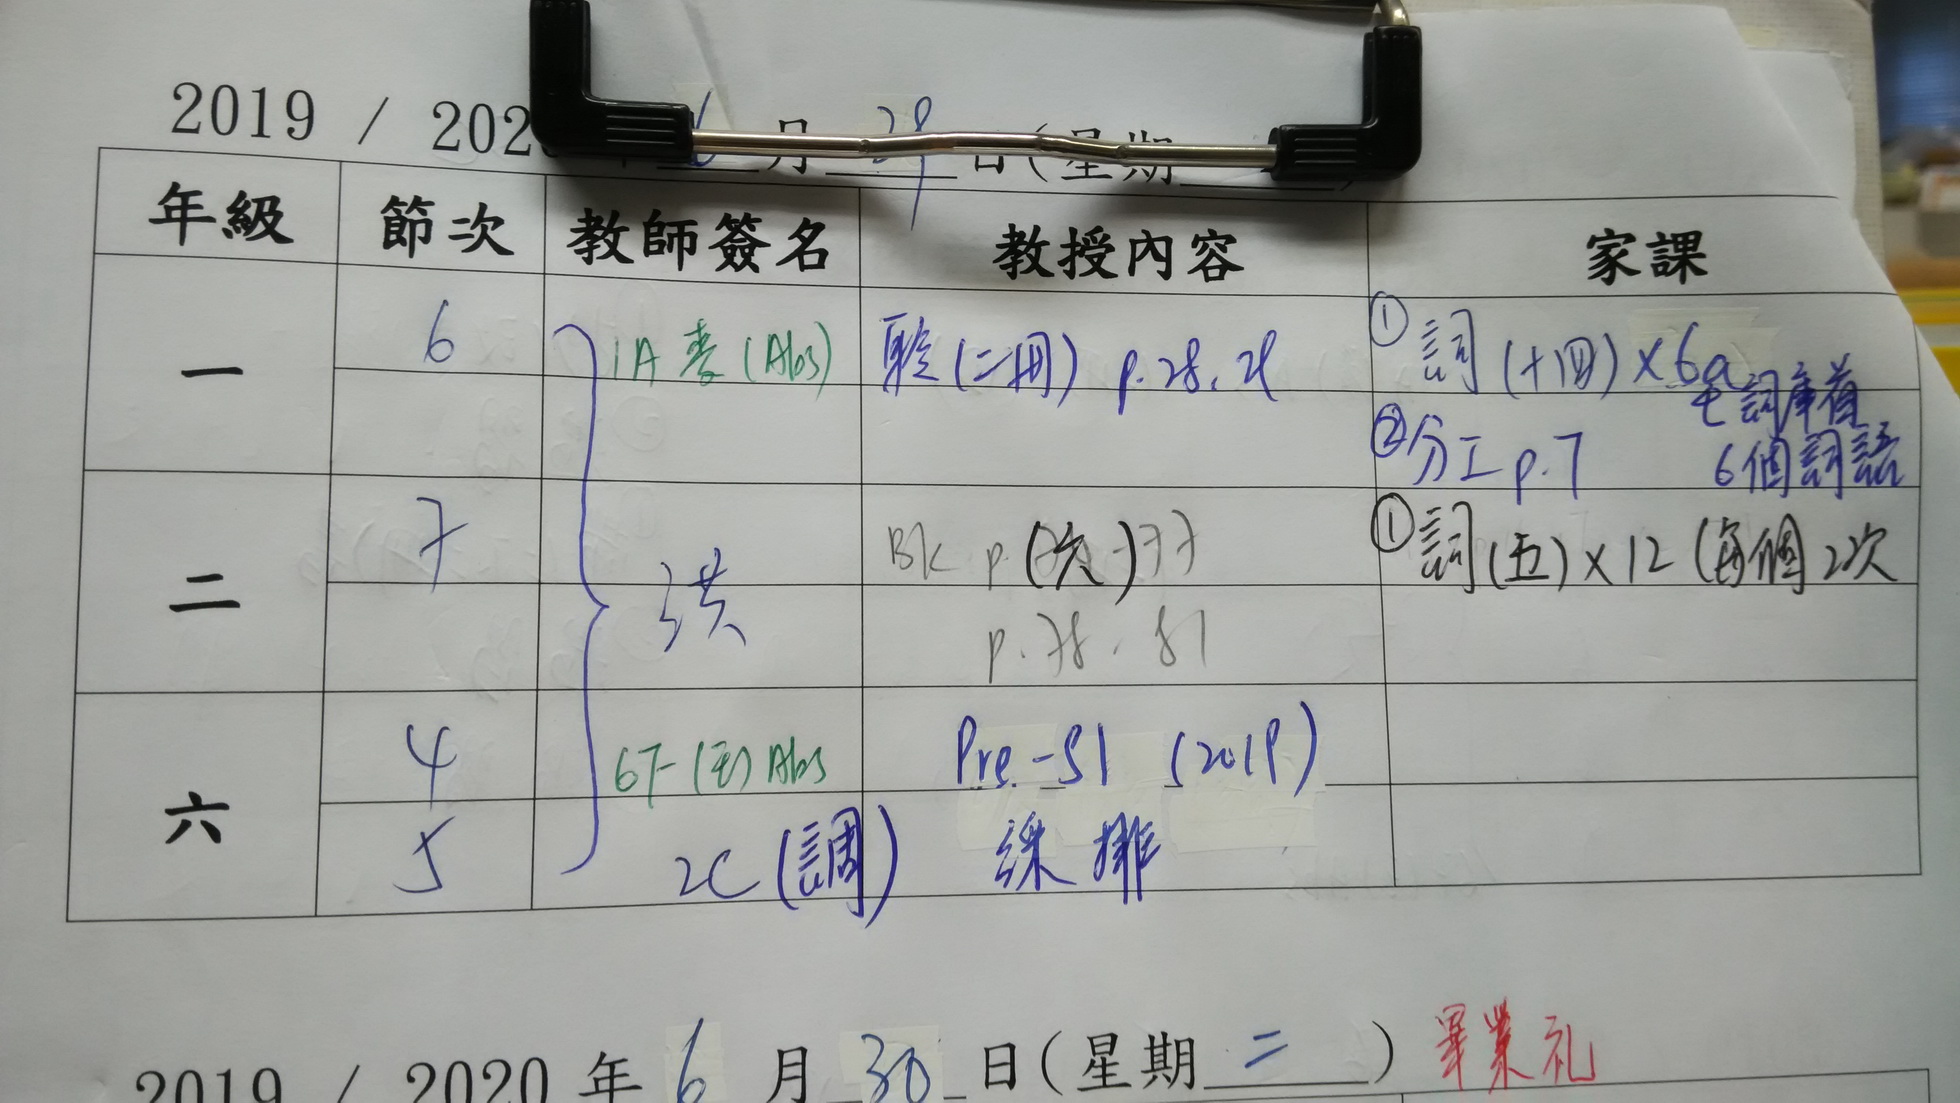 2019 / 202 6 月 29 日(星期
年級 節次 教師簽名 教授內容 家課
一 6 1A 麥 (Abs) 聆(二冊) p.28, 29 ① 詞(十四)×6a
詞庫首
② 分工 p.7 6個詞語
二 7 洪 Bk p. (六) 77 ① 詞(五)×12 (每個2次
p.78, 81
六 4 6F Abs Pre-S1 (2019)
5 2C (調) 綵排
2019 / 2020 年 6 月 30 日(星期 二 ) 畢業礼